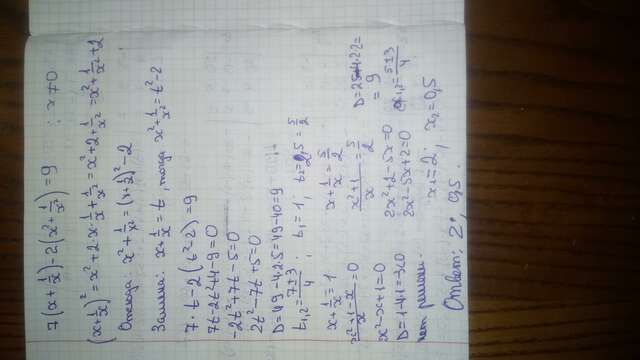 7(x+1/x)-2(x²+1/x²)=9 ; x≠0
(x+1/x)²=x²+2x·1/x+1/x²=x²+2+1/x²=x²+1/x²+2
Отсюда: x²+1/x²=(x+1/x)²-2
Замена: x+1/x=t, тогда x²+1/x²=t²-2
7·t-2(t²-2)=9
7t-2t²+4-9=0
-2t²+7t-5=0
2t²-7t+5=0
D=49-4·2·5=49-40=9 ;
t₁,₂=7±3/4 ; t₁=1, t₂=2,5=5/2
x+1/x=1
x²+1-x/x=0
x²-x+1=0
D=1-4·1=-3<0
нет решений.
x+1/x=5/2
x²+1/x=5/2
2x²+2-5x=0
2x²-5x+2=0
D=25-4·2·2=
=9
x₁,₂=5±3/4
x₁=2; x₂=0,5
Ответ: 2; 0,5.